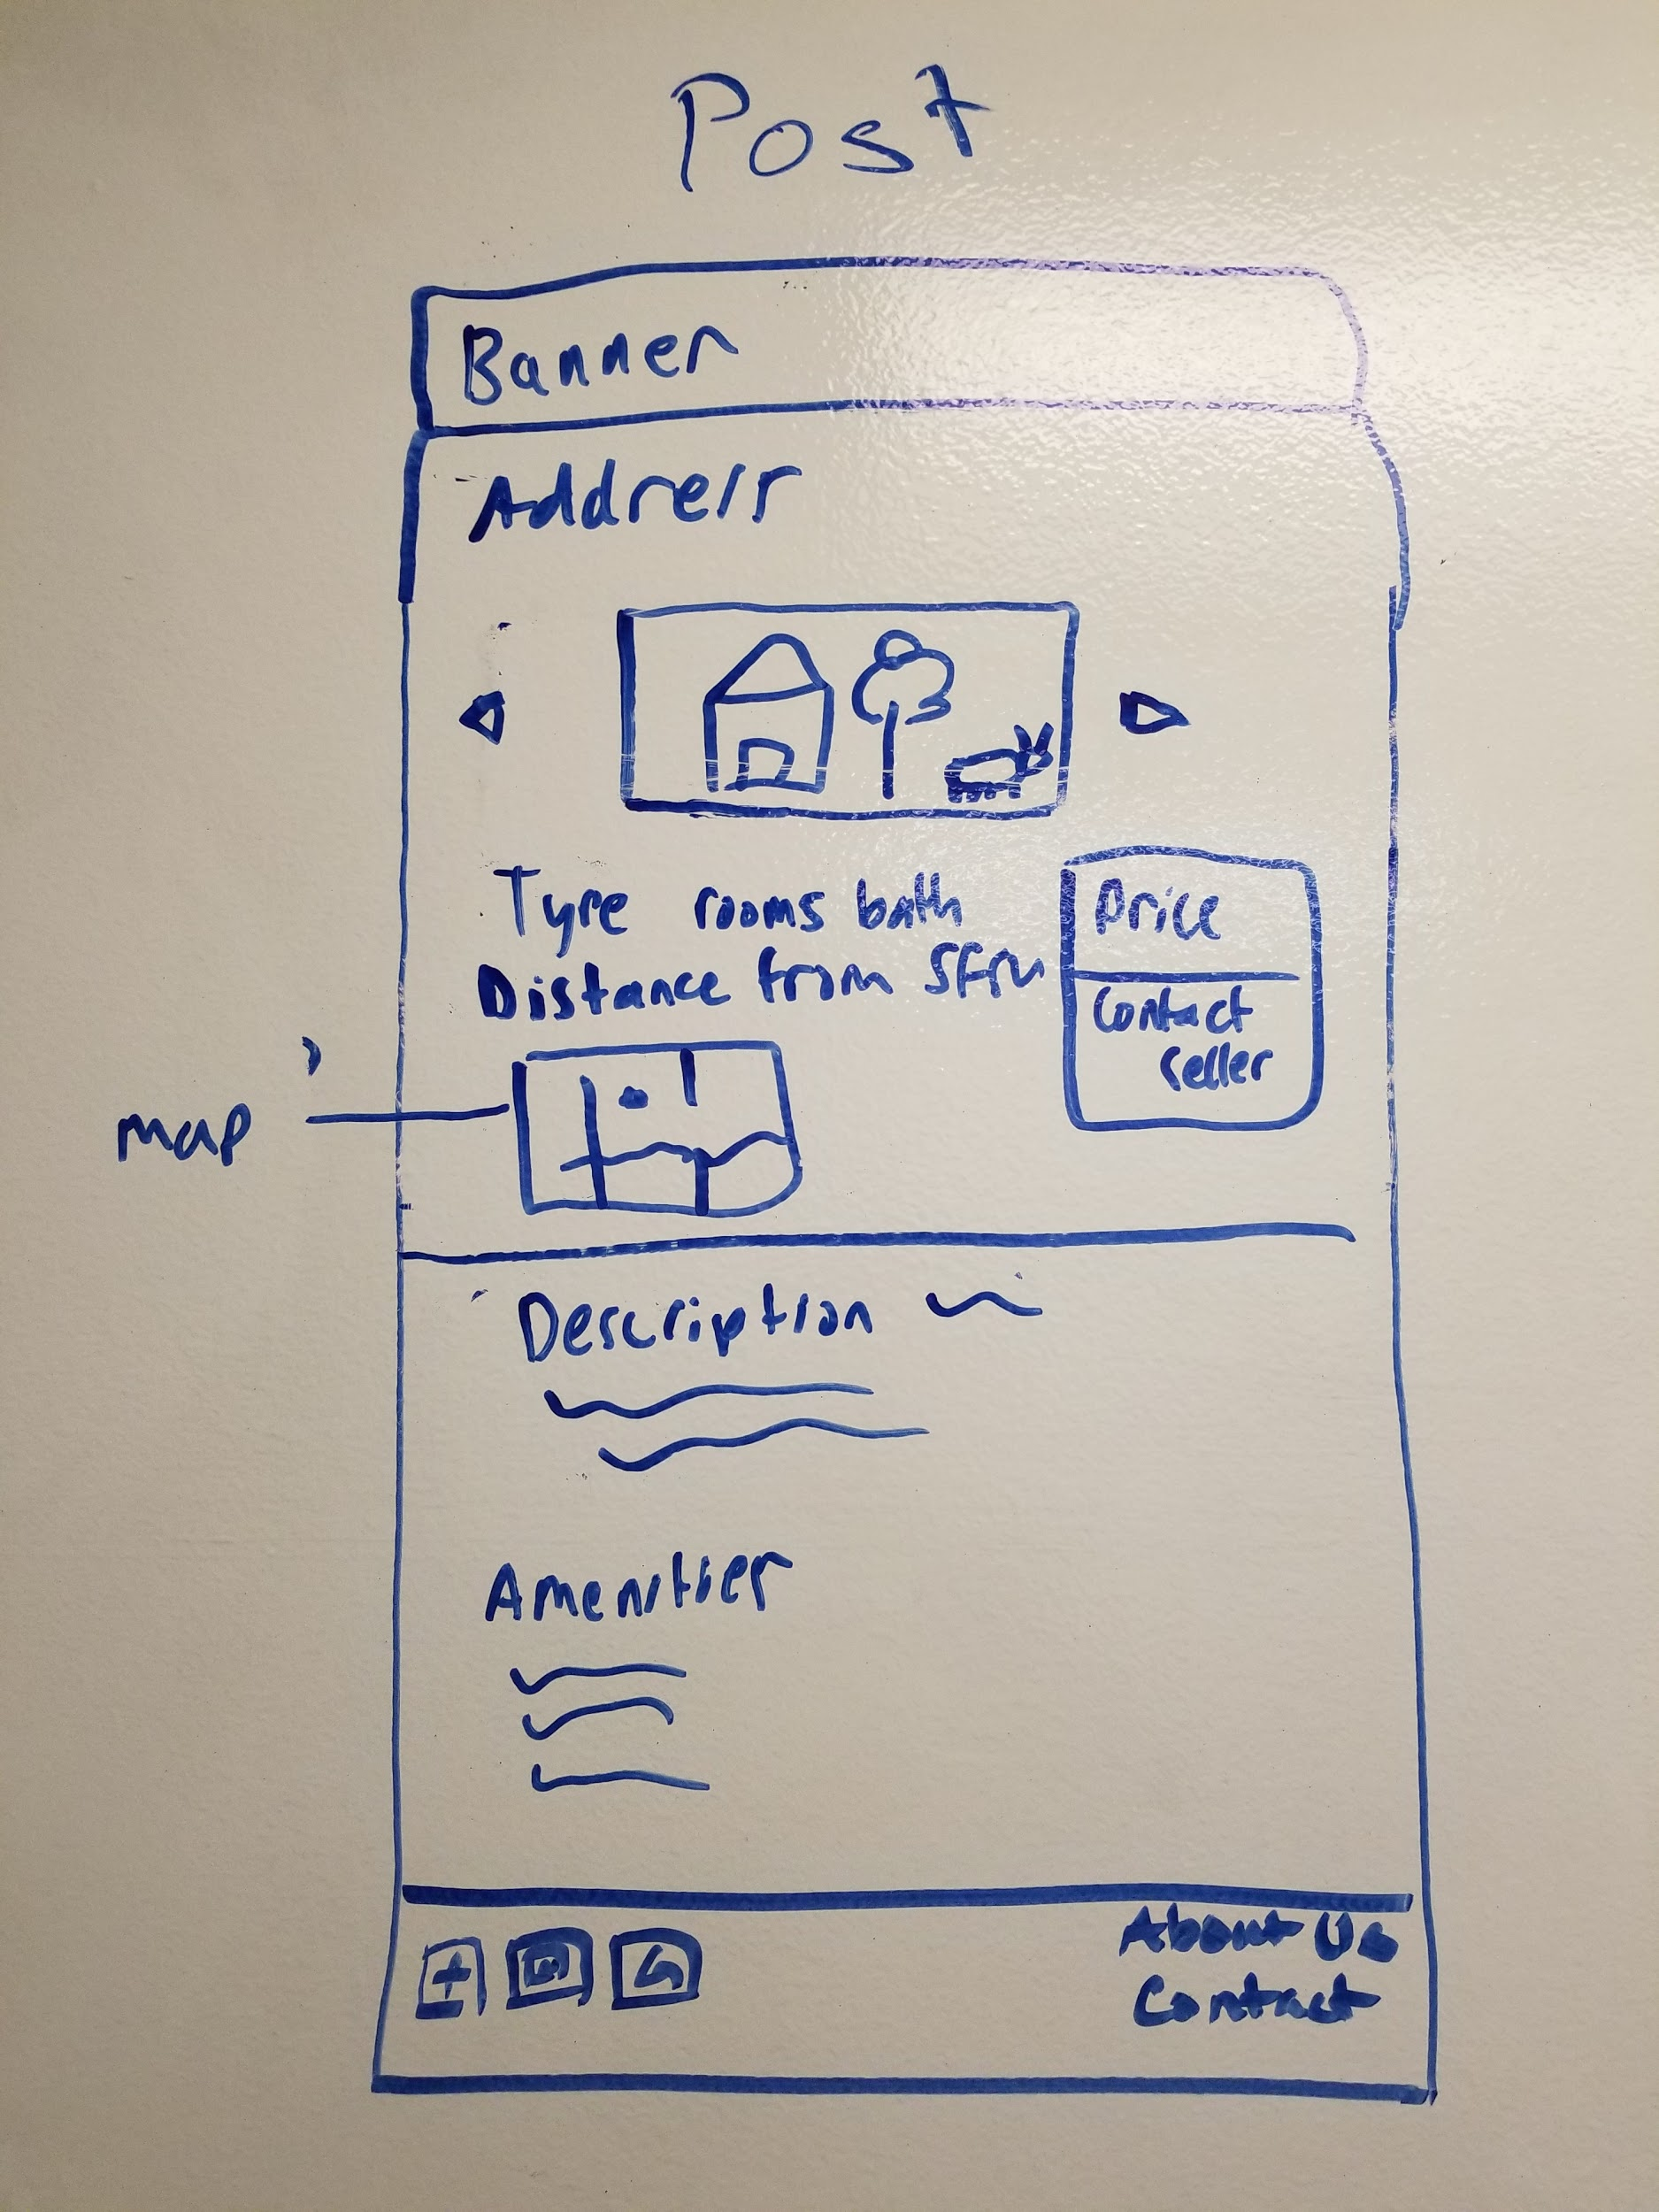 Post
Banner
Address
Type rooms bath
Distance from SFSU
Price
Contact
Seller
map
Description
Amenities
About Us
Contact